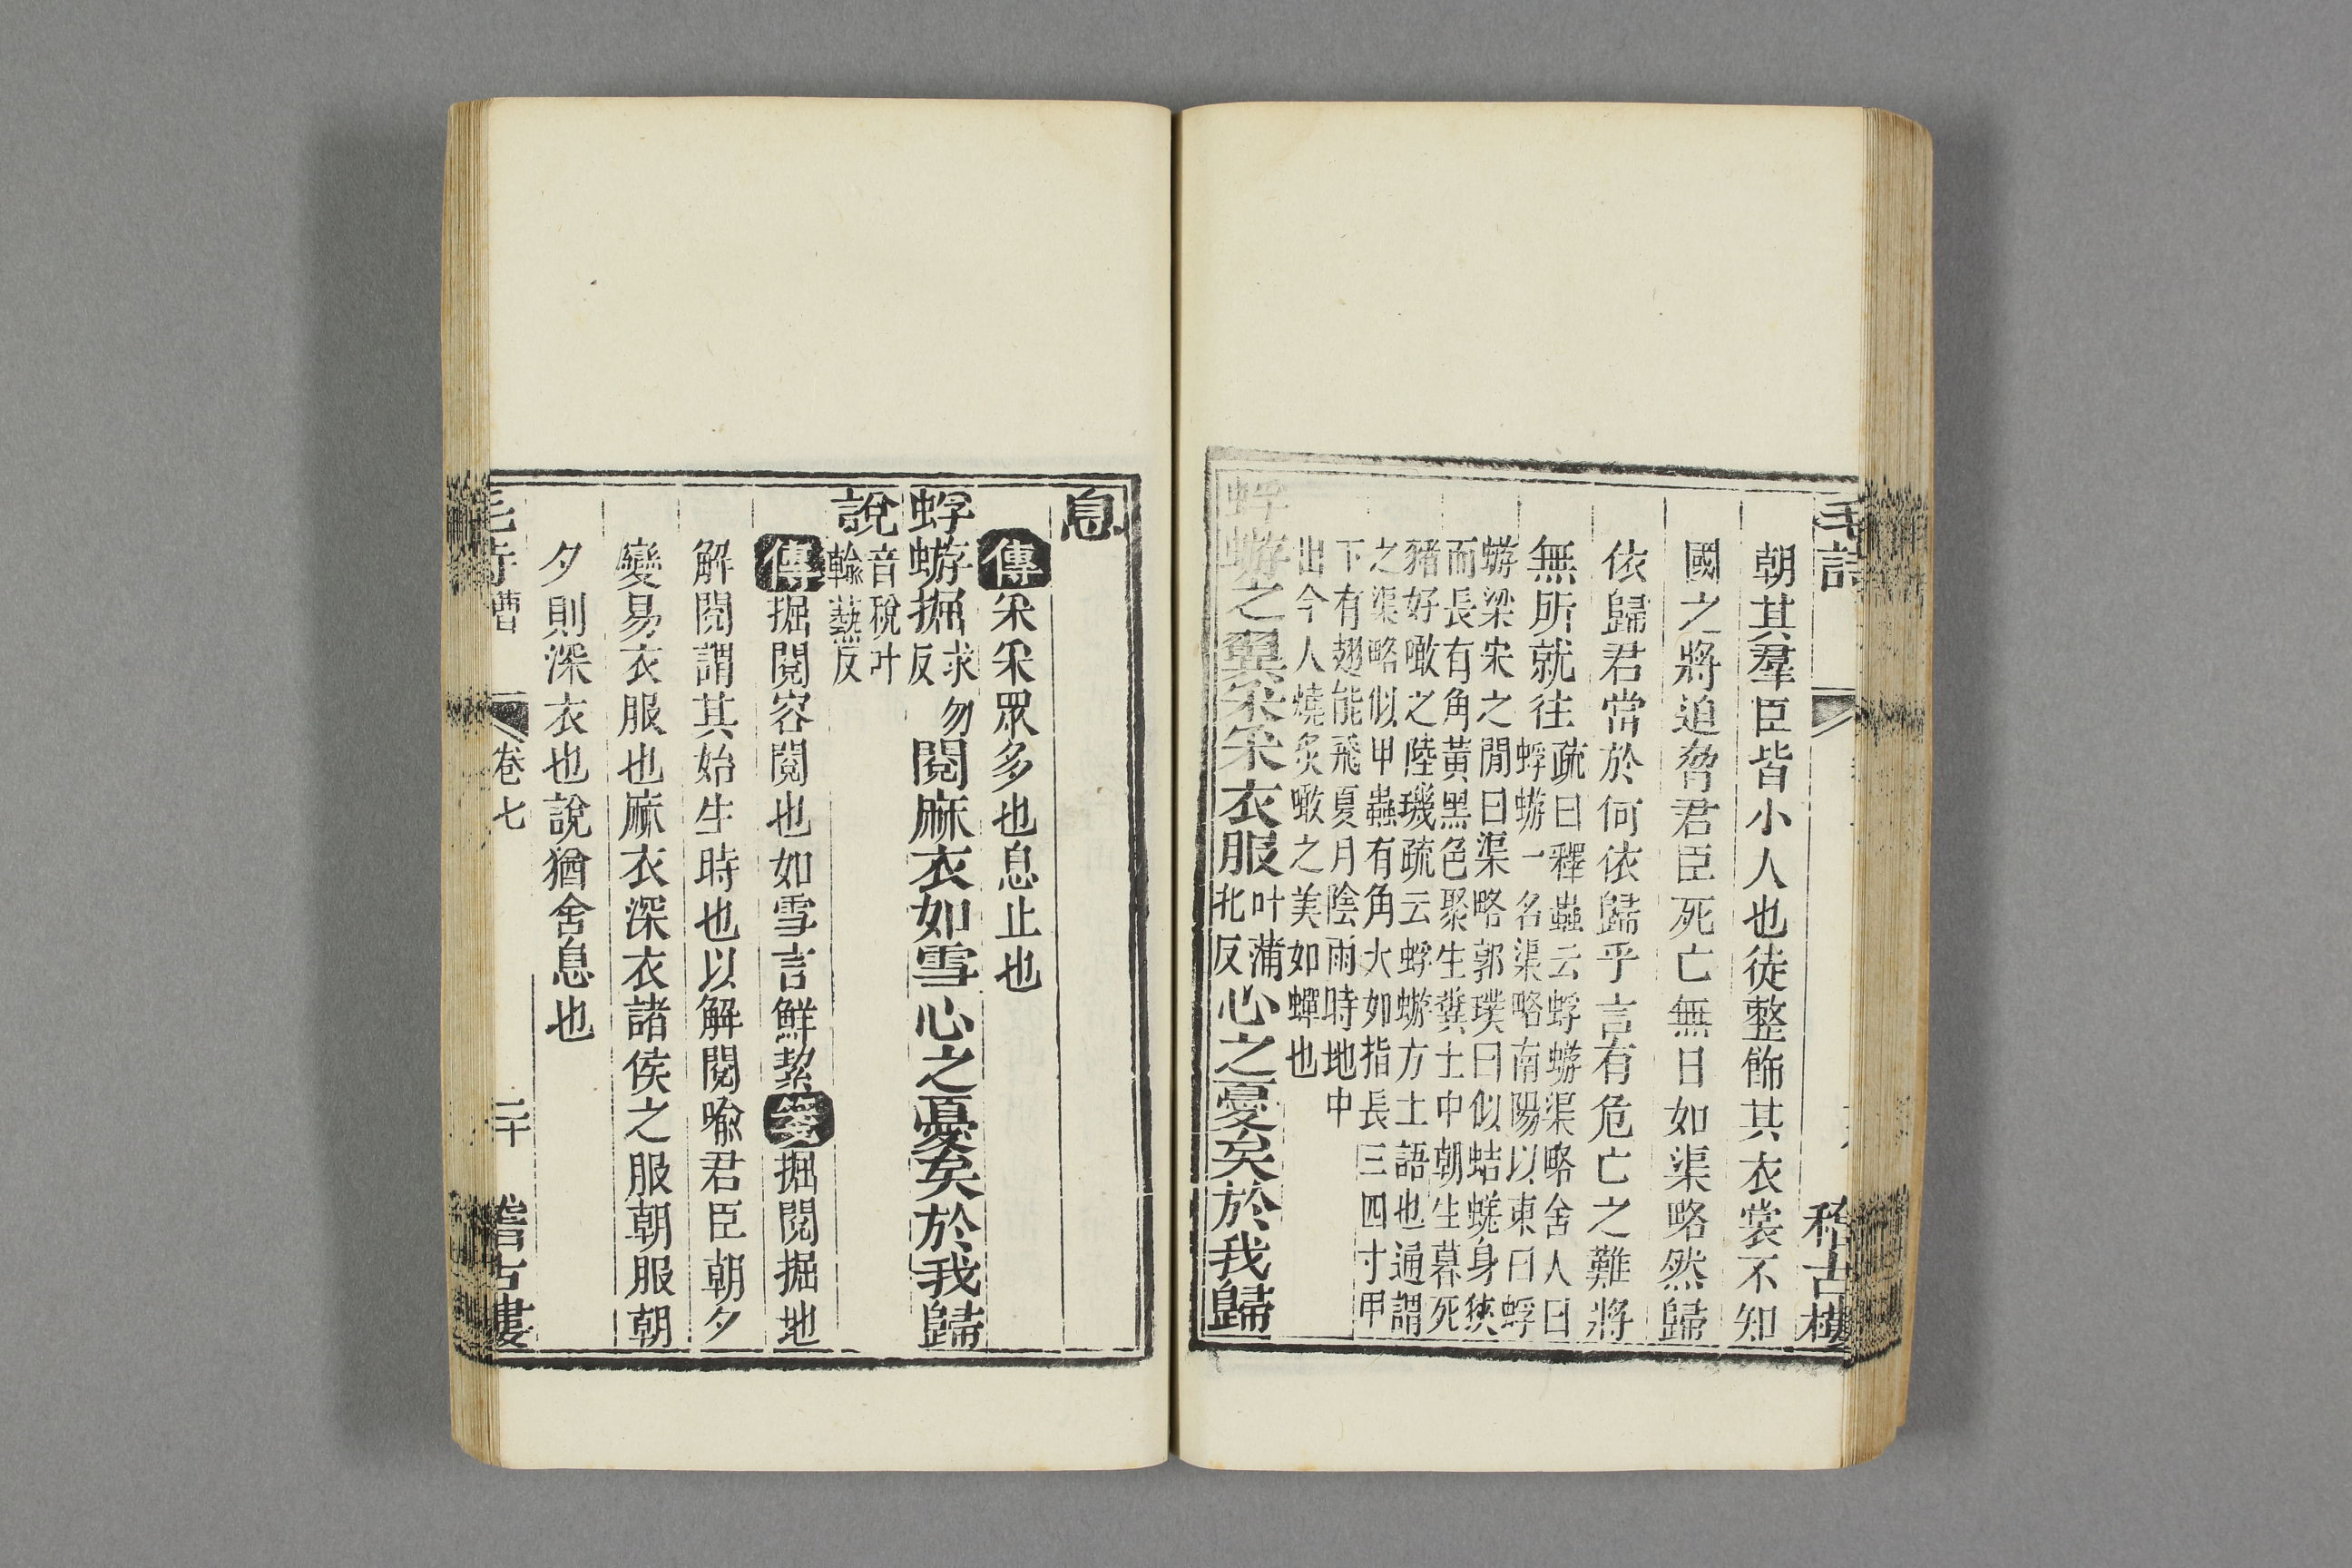 毛詩
稽古樓
朝其羣臣皆小人也徒整飾其衣裳不知
國之將迫脅君臣死亡無日如渠略然歸
依歸君當於何依歸乎言有危亡之難將
無所就往
疏曰釋蟲云蜉蝣渠略舍人曰
蜉蝣一名渠略南陽以東曰蜉
蝣梁宋之閒曰渠略郭璞曰似蛣蜣身狹
而長有角黃黑色聚生糞土中朝生暮死
豬好噉之陸璣疏云蜉蝣方土語也通謂
之渠略似甲蟲有角大如指長三四寸甲
下有翅能飛夏月陰雨時地中
出今人燒炙噉之美如蟬也
蜉蝣之翼采采衣服叶蒲北反心之憂矣於我歸
息
傳采采眾多也息止也
蜉蝣掘求勿反閱麻衣如雪心之憂矣於我歸
說音稅叶輸爇反
傳掘閱容閱也如雪言鮮絜箋掘閱掘地
解閱謂其始生時也以解閱喻君臣朝夕
變易衣服也麻衣深衣諸侯之服朝服朝
夕則深衣也說猶舍息也
毛詩 曹 卷七 二十 稽古樓